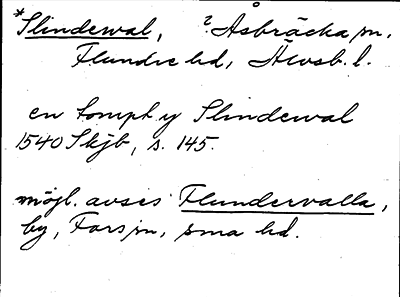 *Slindewal, ? Åsbräcka sn,
Flundre hd, Älvsb. l.
en tompt y Slindewal
1540 Skjb, s. 145.
möjl. avses Flundervalla,
by, Fors sn, sma hd.